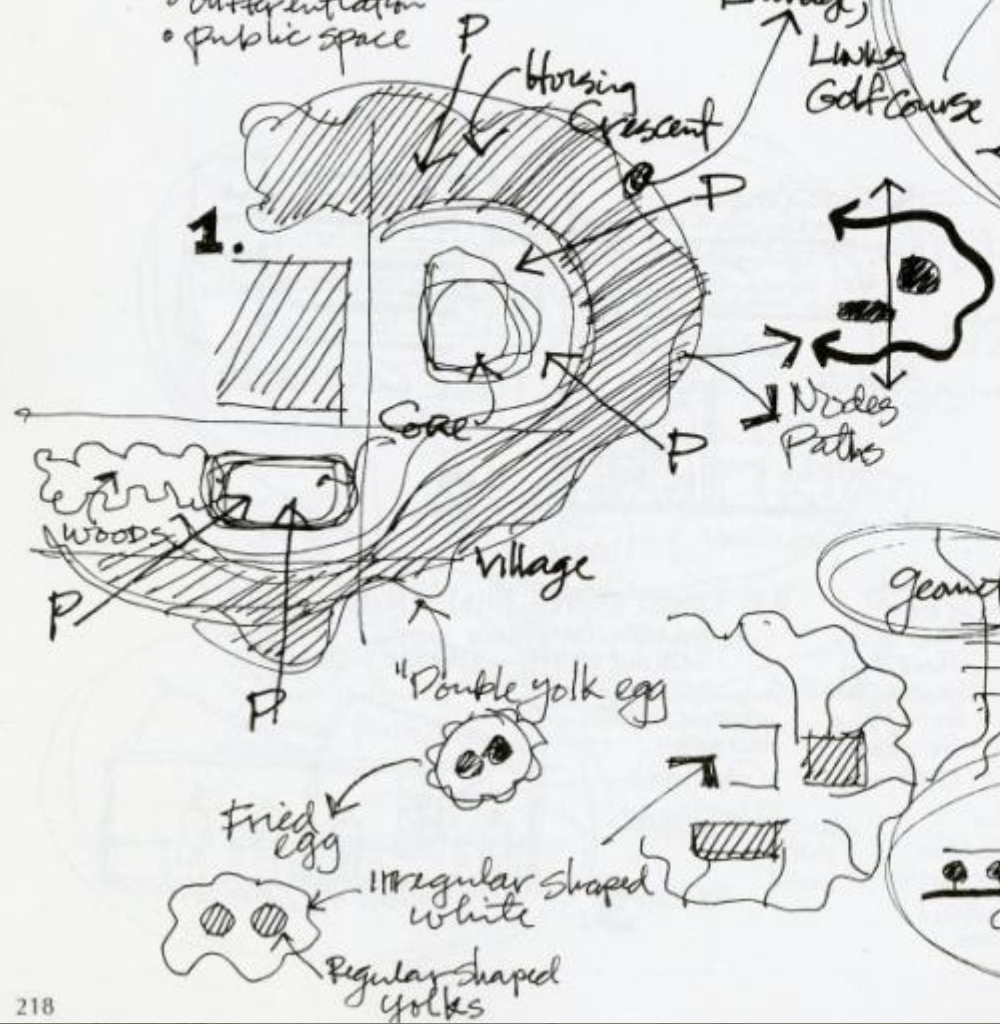 • differentiation
• public space
P
Housing
Crescent
LINKS
Golf course
P
1.
Nodes
Paths
Core
P
WOODS
Village
P
P
"Double yolk egg
Fried
egg
irregular shaped
white
Regular shaped
yolks
218